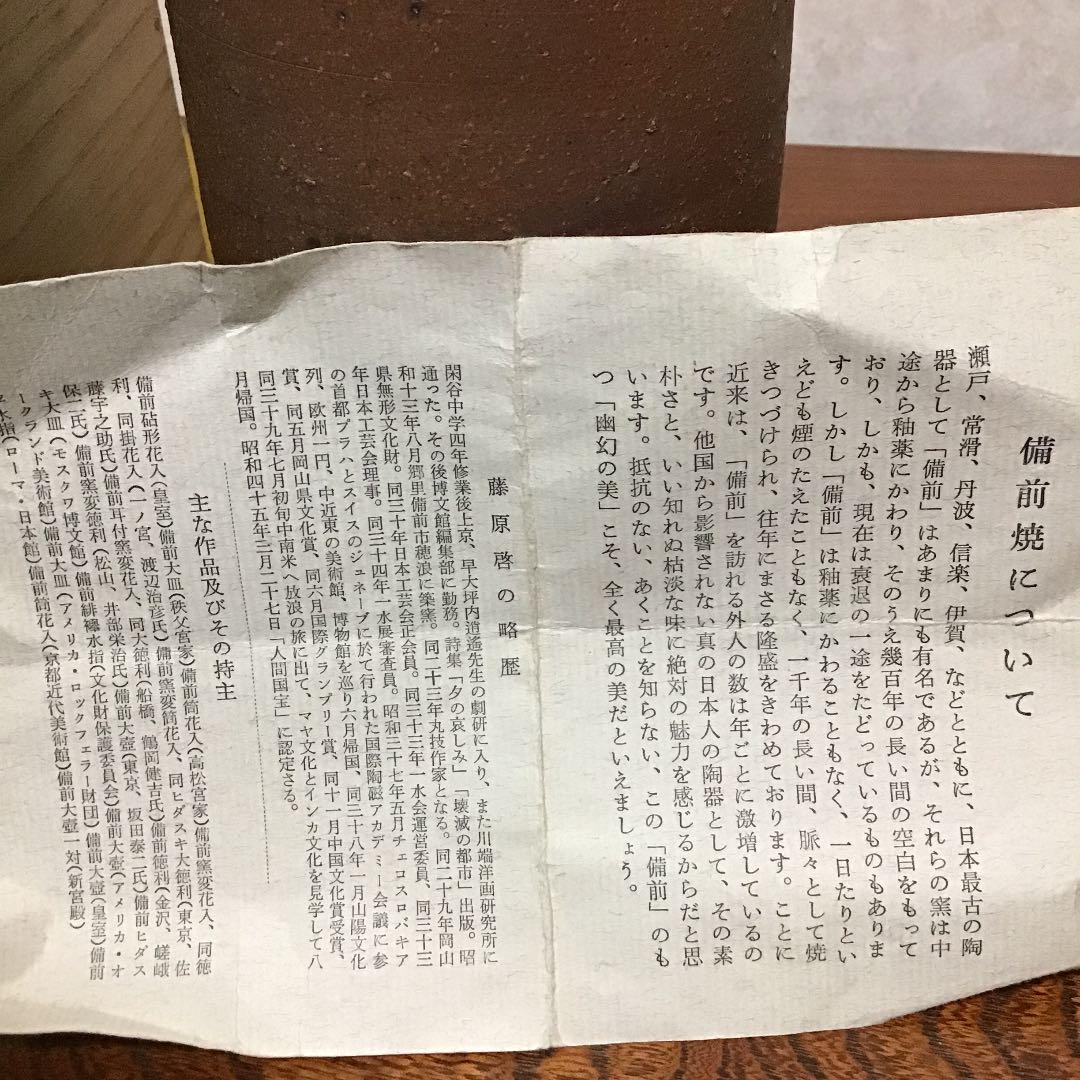 備前焼について
瀬戸、常滑、丹波、信楽、伊賀、などとともに、日本最古の陶
器として「備前」はあまりにも有名であるが、それらの窯は中
途から釉薬にかわり、そのうえ幾百年の長い間の空白をもって
おり、しかも、現在は衰退の一途をたどっているものもありま
す。しかし「備前」は釉薬にかわることもなく、一日たりとい
えども煙のたえたこともなく、一千年の長い間、脈々として焼
きつづけられ、往年にまさる隆盛をきわめております。ことに
近来は、「備前」を訪れる外人の数は年ごとに激増しているの
です。他国から影響されない真の日本人の陶器として、その素
朴さと、いい知れぬ枯淡な味に絶対の魅力を感じるからだと思
います。抵抗のない、あくことを知らない、この「備前」のも
つ「幽幻の美」こそ、全く最高の美だといえましょう。
藤原啓の略歴
閑谷中学四年修業後上京、早大坪内逍遙先生の劇研に入り、また川端洋画研究所に
通った。その後博文館編集部に勤務。詩集「夕の哀しみ」「壊滅の都市」出版。昭
和十三年八月郷里備前市穂浪に築窯。同二十三年丸技作家となる。同二十九年岡山
県無形文化財。同三十年日本工芸会正会員。同三十三年一水会運営委員、同三十三
年日本工芸会理事。同三十四年一水展審査員。昭和三十七年五月チェコスロバキア
の首都プラハとスイスのジュネーブに於て行われた国際陶磁アカデミー会議に参
列、欧州一円、中近東の美術館、博物館を巡り六月帰国、同三十八年一月山陽文化
賞、同五月岡山県文化賞、同六月国際グランプリー賞、同十一月中国文化賞受賞、
同三十九年七月初旬中南米へ放浪の旅に出て、マヤ文化とインカ文化を見学して八
月帰国。昭和四十五年三月二十七日「人間国宝」に認定さる。
主な作品及びその持主
備前砧形花入(皇室)備前大皿(秩父宮家)備前筒花入(高松宮家)備前窯変花入、同徳
利、同掛花入(一ノ宮、渡辺治彦氏)備前窯変筒花入、同ヒダスキ大徳利(東京、佐
藤宇之助氏)備前耳付窯変花入、同大徳利(船橋、鶴岡健吉氏)備前徳利(金沢、嵯峨
保二氏)備前窯変徳利(松山、井部栄治氏)備前大壺(東京、坂田泰二氏)備前ヒダス
キ大皿(モスクワ博文館)備前緋襷水指(文化財保護委員会)備前大壺(アメリカ・オ
ークランド美術館)備前大皿(アメリカ・ロックフェラー財団)備前大壺(皇室)備前
水指(ローマ・日本館)備前筒花入(京都近代美術館)備前大壺一対(新宮殿)